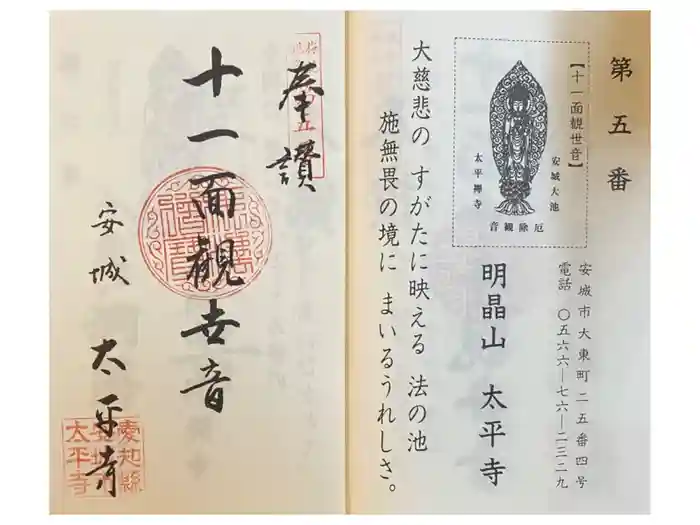 第五番
【十一面観世音】
安城大池
太平禅寺
厄除観音
安城市大東町二五番四号
電話 〇五六六―七六―二三二九
明晶山 太平寺
大慈悲の すがたに映える 法の池
施無畏の境に まいるうれしさ。
奉讃
十一面観世音
安城 太平寺
愛知縣
安城市
太平寺